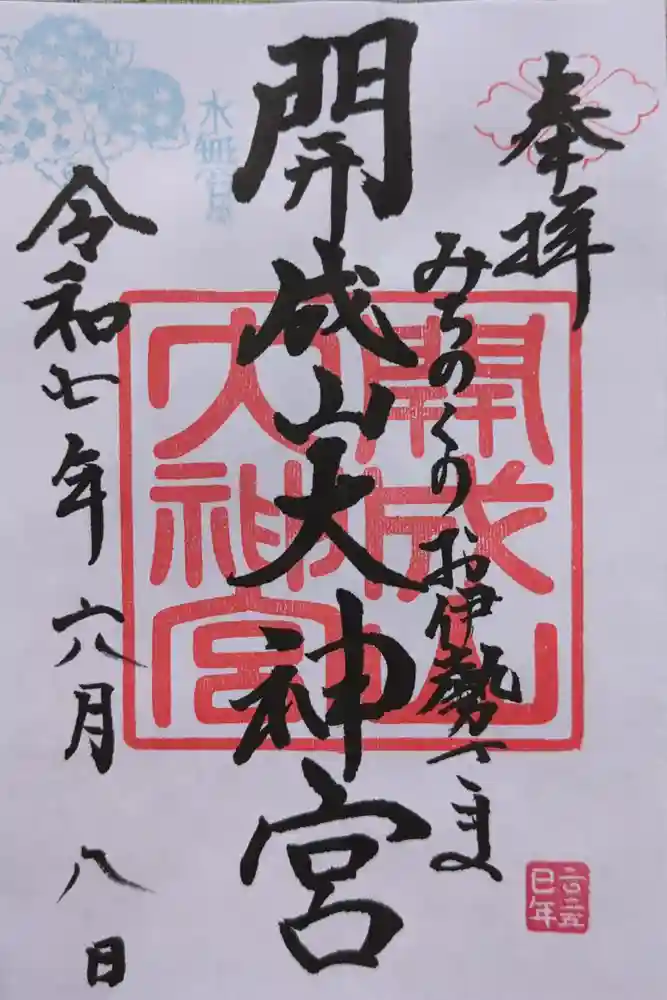 奉拝
みちのくのお伊勢さま
開成山大神宮
開成山
大神宮
水無月
令和七年六月八日
二〇二五
巳年